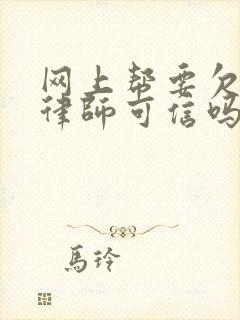 网上帮要欠
律師可信吗
馬玲